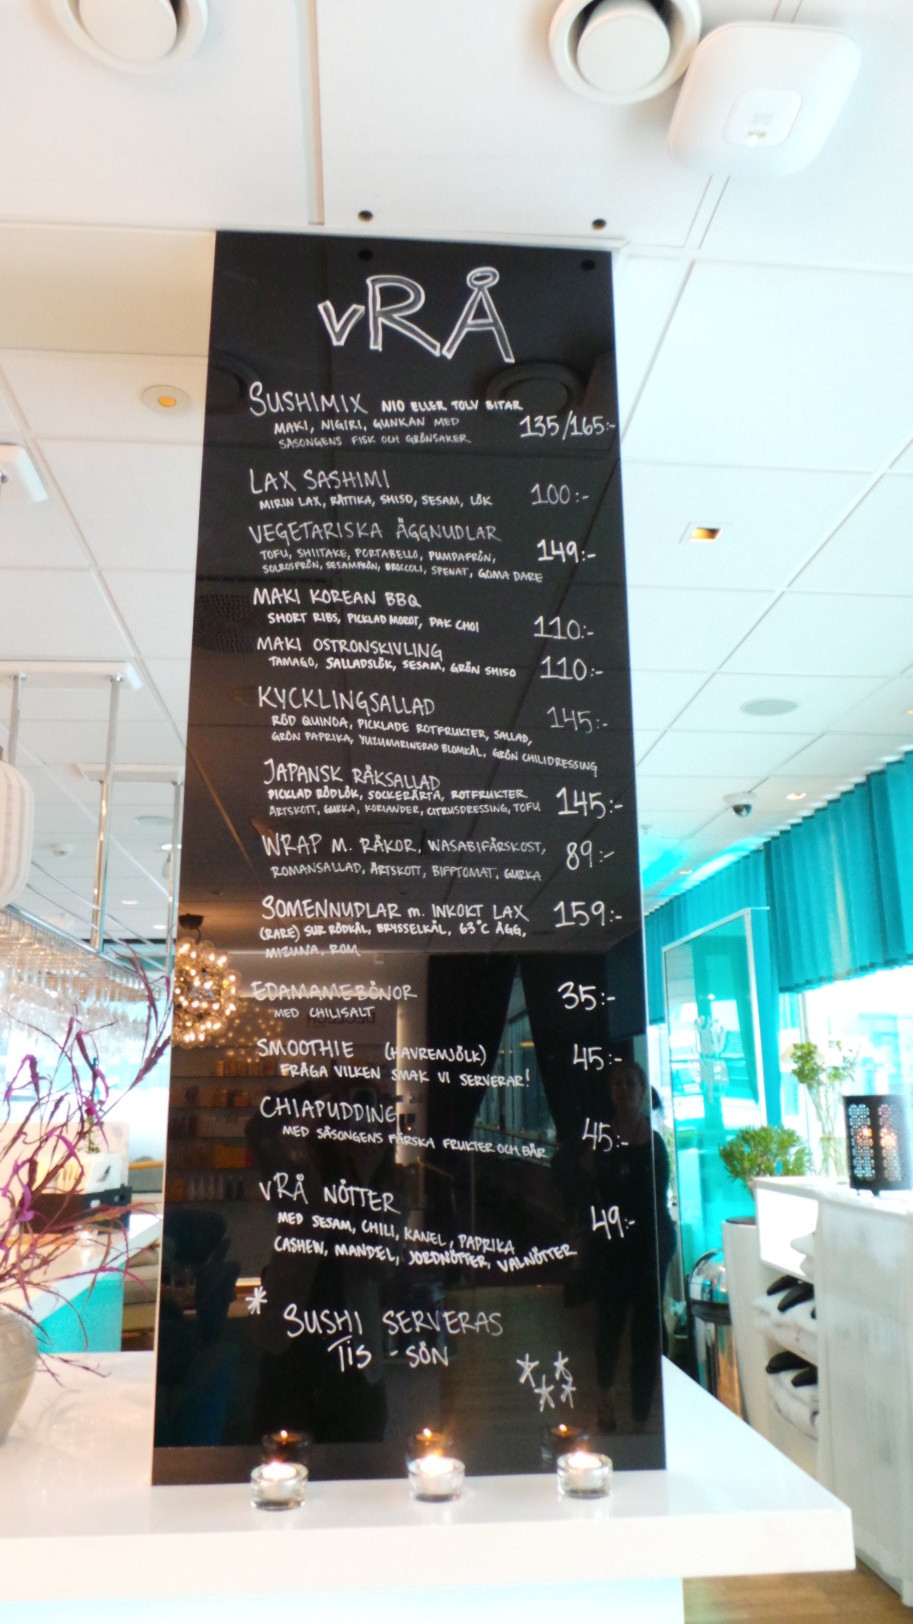 vRÅ
SUSHIMIX NIO ELLER TOLV BITAR
MAKI, NIGIRI, GUNKAN MED 135/165:-
SÄSONGENS FISK OCH GRÖNSAKER
LAX SASHIMI
MIRIN LAX, RÄTTIKA, SHISO, SESAM, LÖK 100:-
VEGETARISKA ÄGGNUDLAR
TOFU, SHIITAKE, PORTABELLO, PUMPAFRÖN, 149:-
SOLROSFRÖN, SESAMFRÖN, BROCCOLI, SPENAT, GOMA DARE
MAKI KOREAN BBQ
SHORT RIBS, PICKLAD MOROT, PAK CHOI 110:-
MAKI OSTRONSKIVLING
TAMAGO, SALLADSLÖK, SESAM, GRÖN SHISO 110:-
KYCKLINGSALLAD
RÖD QUINOA, PICKLADE ROTFRUKTER, SALLAD, 145:-
GRÖN PAPRIKA, YUZUMARINERAD BLOMKÅL, GRÖN CHILIDRESSING
JAPANSK RÄKSALLAD
PICKLAD RÖDLÖK, SOCKERÄRTA, ROTFRUKTER 145:-
ÄRTSKOTT, GURKA, KORIANDER, CITRUSDRESSING, TOFU
WRAP M. RÄKOR, WASABIFÄRSKOST, 89:-
ROMANSALLAD, ÄRTSKOTT, BIFFTOMAT, GURKA
SOMENNUDLAR m. INKOKT LAX 159:-
(RARE) SUR RÖDKÅL, BRYSSELKÅL, 63°C ÄGG,
MIZUNA, ROM
EDAMAMEBÖNOR 35:-
MED CHILISALT
SMOOTHIE (HAVREMJÖLK) 45:-
FRÅGA VILKEN SMAK VI SERVERAR!
CHIAPUDDING
MED SÄSONGENS FÄRSKA FRUKTER OCH BÄR 45:-
vRÅ NÖTTER
MED SESAM, CHILI, KANEL, PAPRIKA 49:-
CASHEW, MANDEL, JORDNÖTTER, VALNÖTTER
* SUSHI SERVERAS
TIS - SÖN